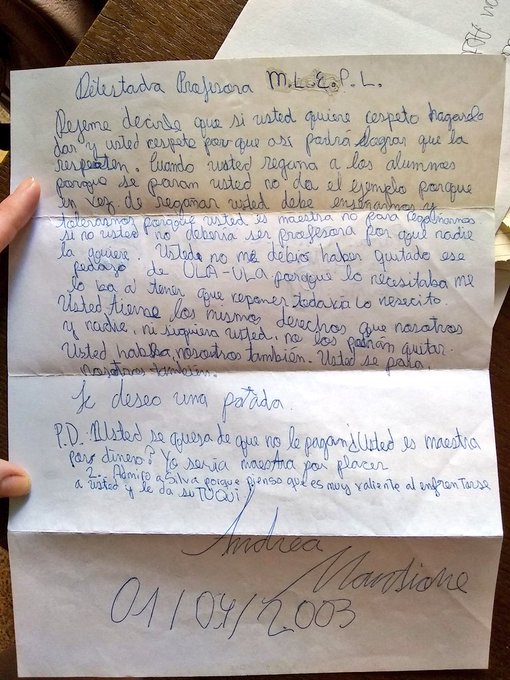 Detestada Profesora M.L.E.P.L.
Dejeme decirle que si usted quiere respeto hagaselo
dar y usted respete porque asi podrá lograr que la
respeten. Cuando usted regaña a los alumnos
porque se paran usted no da el ejemplo porque
en vez de regañar usted debe enseñarnos y
tolerarnos porque usted es maestra no para regañarnos
si no usted no deberia ser profesora por que nadie
la quiere. Usted no me debio haber quitado ese
pedazo de ULA-ULA porque lo necesitaba me
lo va a tener que reponer todavia lo nesecito.
Usted tiene los mismos derechos que nosotros
y nadie, ni siquiera usted, no los podrán quitar.
Usted, habla, nosotros también. Usted se para,
nosotros también.
Le deseo una patada.
P.D. 1 Usted se queja de que no le pagan ¿Usted es maestra
por dinero? Yo seria maestra por placer
2. Admiro a Silva porque pienso que es muy valiente al enfrentarse
a usted y le da su TUQUI
Andrea
01/04/2003